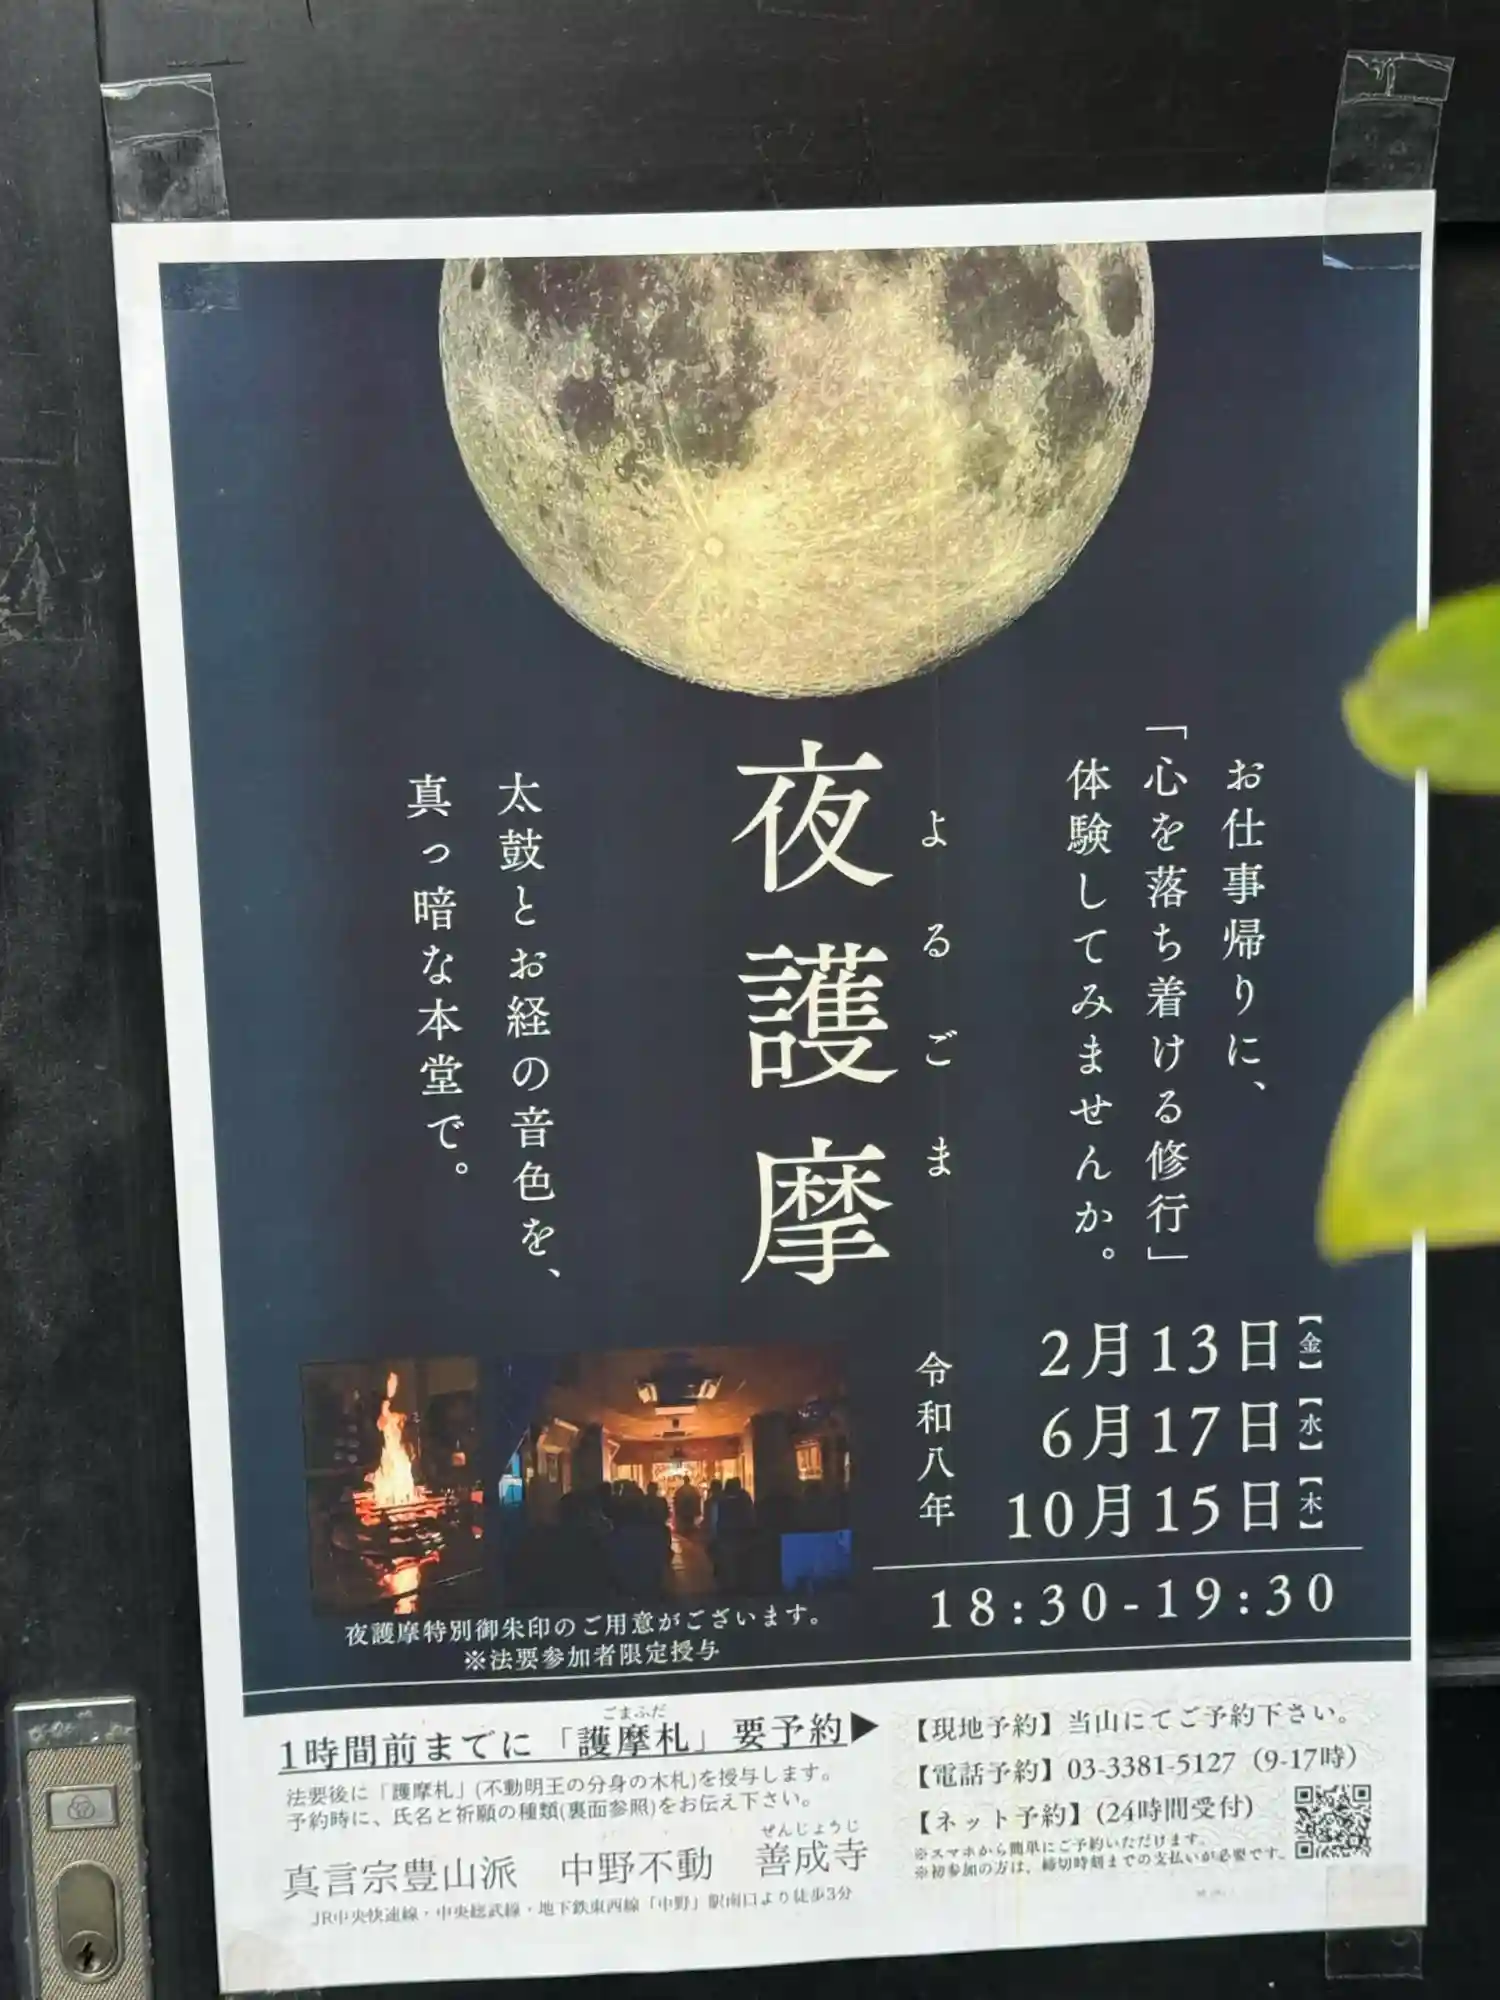 お仕事帰りに、
「心を落ち着ける修行」
体験してみませんか。
よるごま
夜護摩
太鼓とお経の音色を、
真っ暗な本堂で。
令和八年
2月13日【金】
6月17日【水】
10月15日【木】
18:30-19:30
夜護摩特別御朱印のご用意がございます。
※法要参加者限定授与
ごまふだ
1時間前までに「護摩札」要予約▶
法要後に「護摩札」(不動明王の分身の木札)を授与します。
予約時に、氏名と祈願の種類(裏面参照)をお伝え下さい。
ぜんじょうじ
真言宗豊山派 中野不動 善成寺
JR中央快速線・中央総武線・地下鉄東西線「中野」駅南口より徒歩3分
【現地予約】当山にてご予約下さい。
【電話予約】03-3381-5127（9-17時）
【ネット予約】(24時間受付)
※スマホから簡単にご予約いただけます。
※初参加の方は、締切時刻までの支払いが必要です。